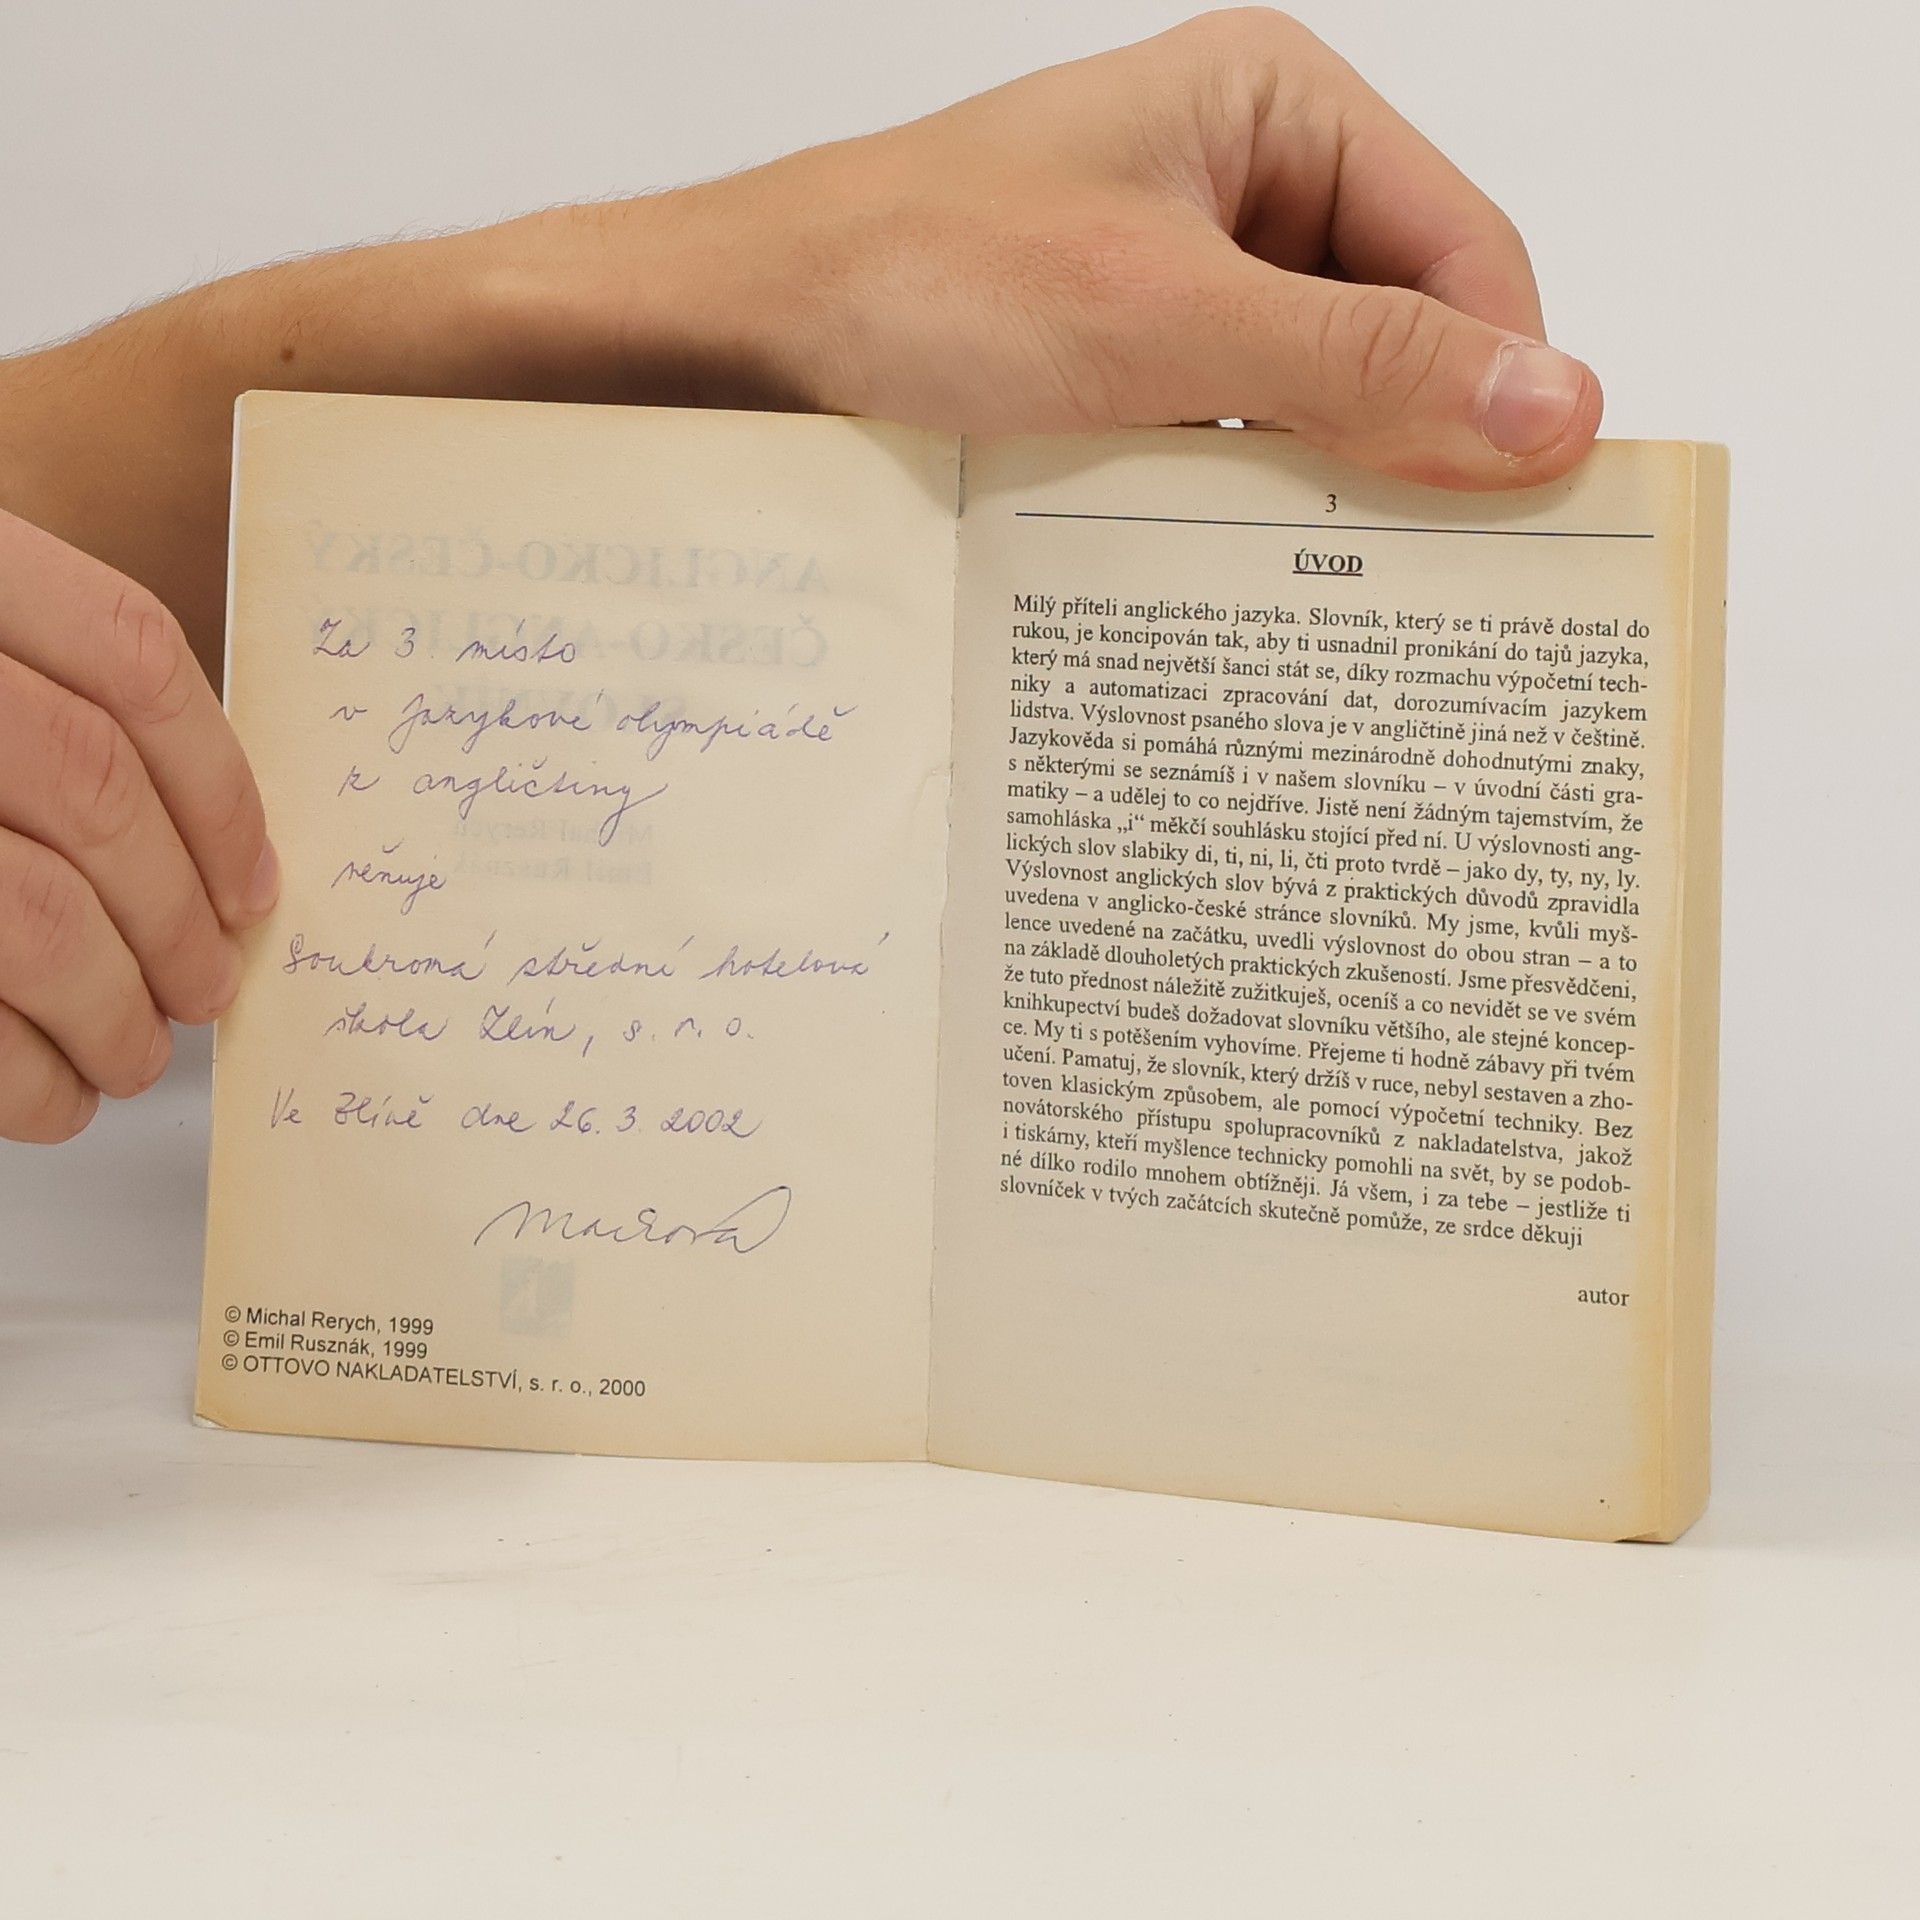 Za 3. místo
v jazykové olympiádě
z angličtiny
věnuje
Soukromá střední hotelová
škola Zlín, s. r. o.
Ve Zlíně dne 26. 3. 2002
© Michal Rerych, 1999
© Emil Rusznák, 1999
© OTTOVO NAKLADATELSTVÍ, s. r. o., 2000
3
ÚVOD
Milý příteli anglického jazyka. Slovník, který se ti právě dostal do
rukou, je koncipován tak, aby ti usnadnil pronikání do tajů jazyka,
který má snad největší šanci stát se, díky rozmachu výpočetní tech-
niky a automatizaci zpracování dat, dorozumívacím jazykem
lidstva. Výslovnost psaného slova je v angličtině jiná než v češtině.
Jazykověda si pomáhá různými mezinárodně dohodnutými znaky,
s některými se seznámíš i v našem slovníku – v úvodní části gra-
matiky – a udělej to co nejdříve. Jistě není žádným tajemstvím, že
samohláska „i“ měkčí souhlásku stojící před ní. U výslovnosti ang-
lických slov slabiky di, ti, ni, li, čti proto tvrdě – jako dy, ty, ny, ly.
Výslovnost anglických slov bývá z praktických důvodů zpravidla
uvedena v anglicko-české stránce slovníků. My jsme, kvůli myš-
lence uvedené na začátku, uvedli výslovnost do obou stran – a to
na základě dlouholetých praktických zkušeností. Jsme přesvědčeni,
že tuto přednost náležitě zužitkuješ, oceníš a co nevidět se ve svém
knihkupectví budeš dožadovat slovníku většího, ale stejné koncep-
ce. My ti s potěšením vyhovíme. Přejeme ti hodně zábavy při tvém
učení. Pamatuj, že slovník, který držíš v ruce, nebyl sestaven a zho-
toven klasickým způsobem, ale pomocí výpočetní techniky. Bez
novátorského přístupu spolupracovníků z nakladatelstva, jakož
i tiskárny, kteří myšlence technicky pomohli na svět, by se podob-
né dílko rodilo mnohem obtížněji. Já všem, i za tebe – jestliže ti
slovníček v tvých začátcích skutečně pomůže, ze srdce děkuji
autor